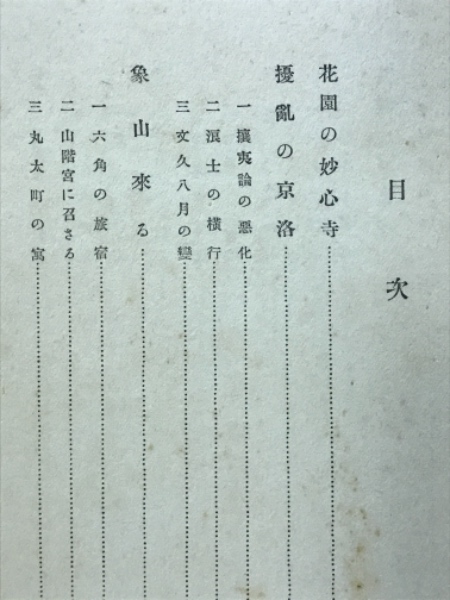 目次
花園の妙心寺
擾亂の京洛
一 攘夷論の惡化
二 浪士の橫行
三 文久八月の變
象山來る
一 六角の旅宿
二 山階宮に召さる
三 丸太町の寓